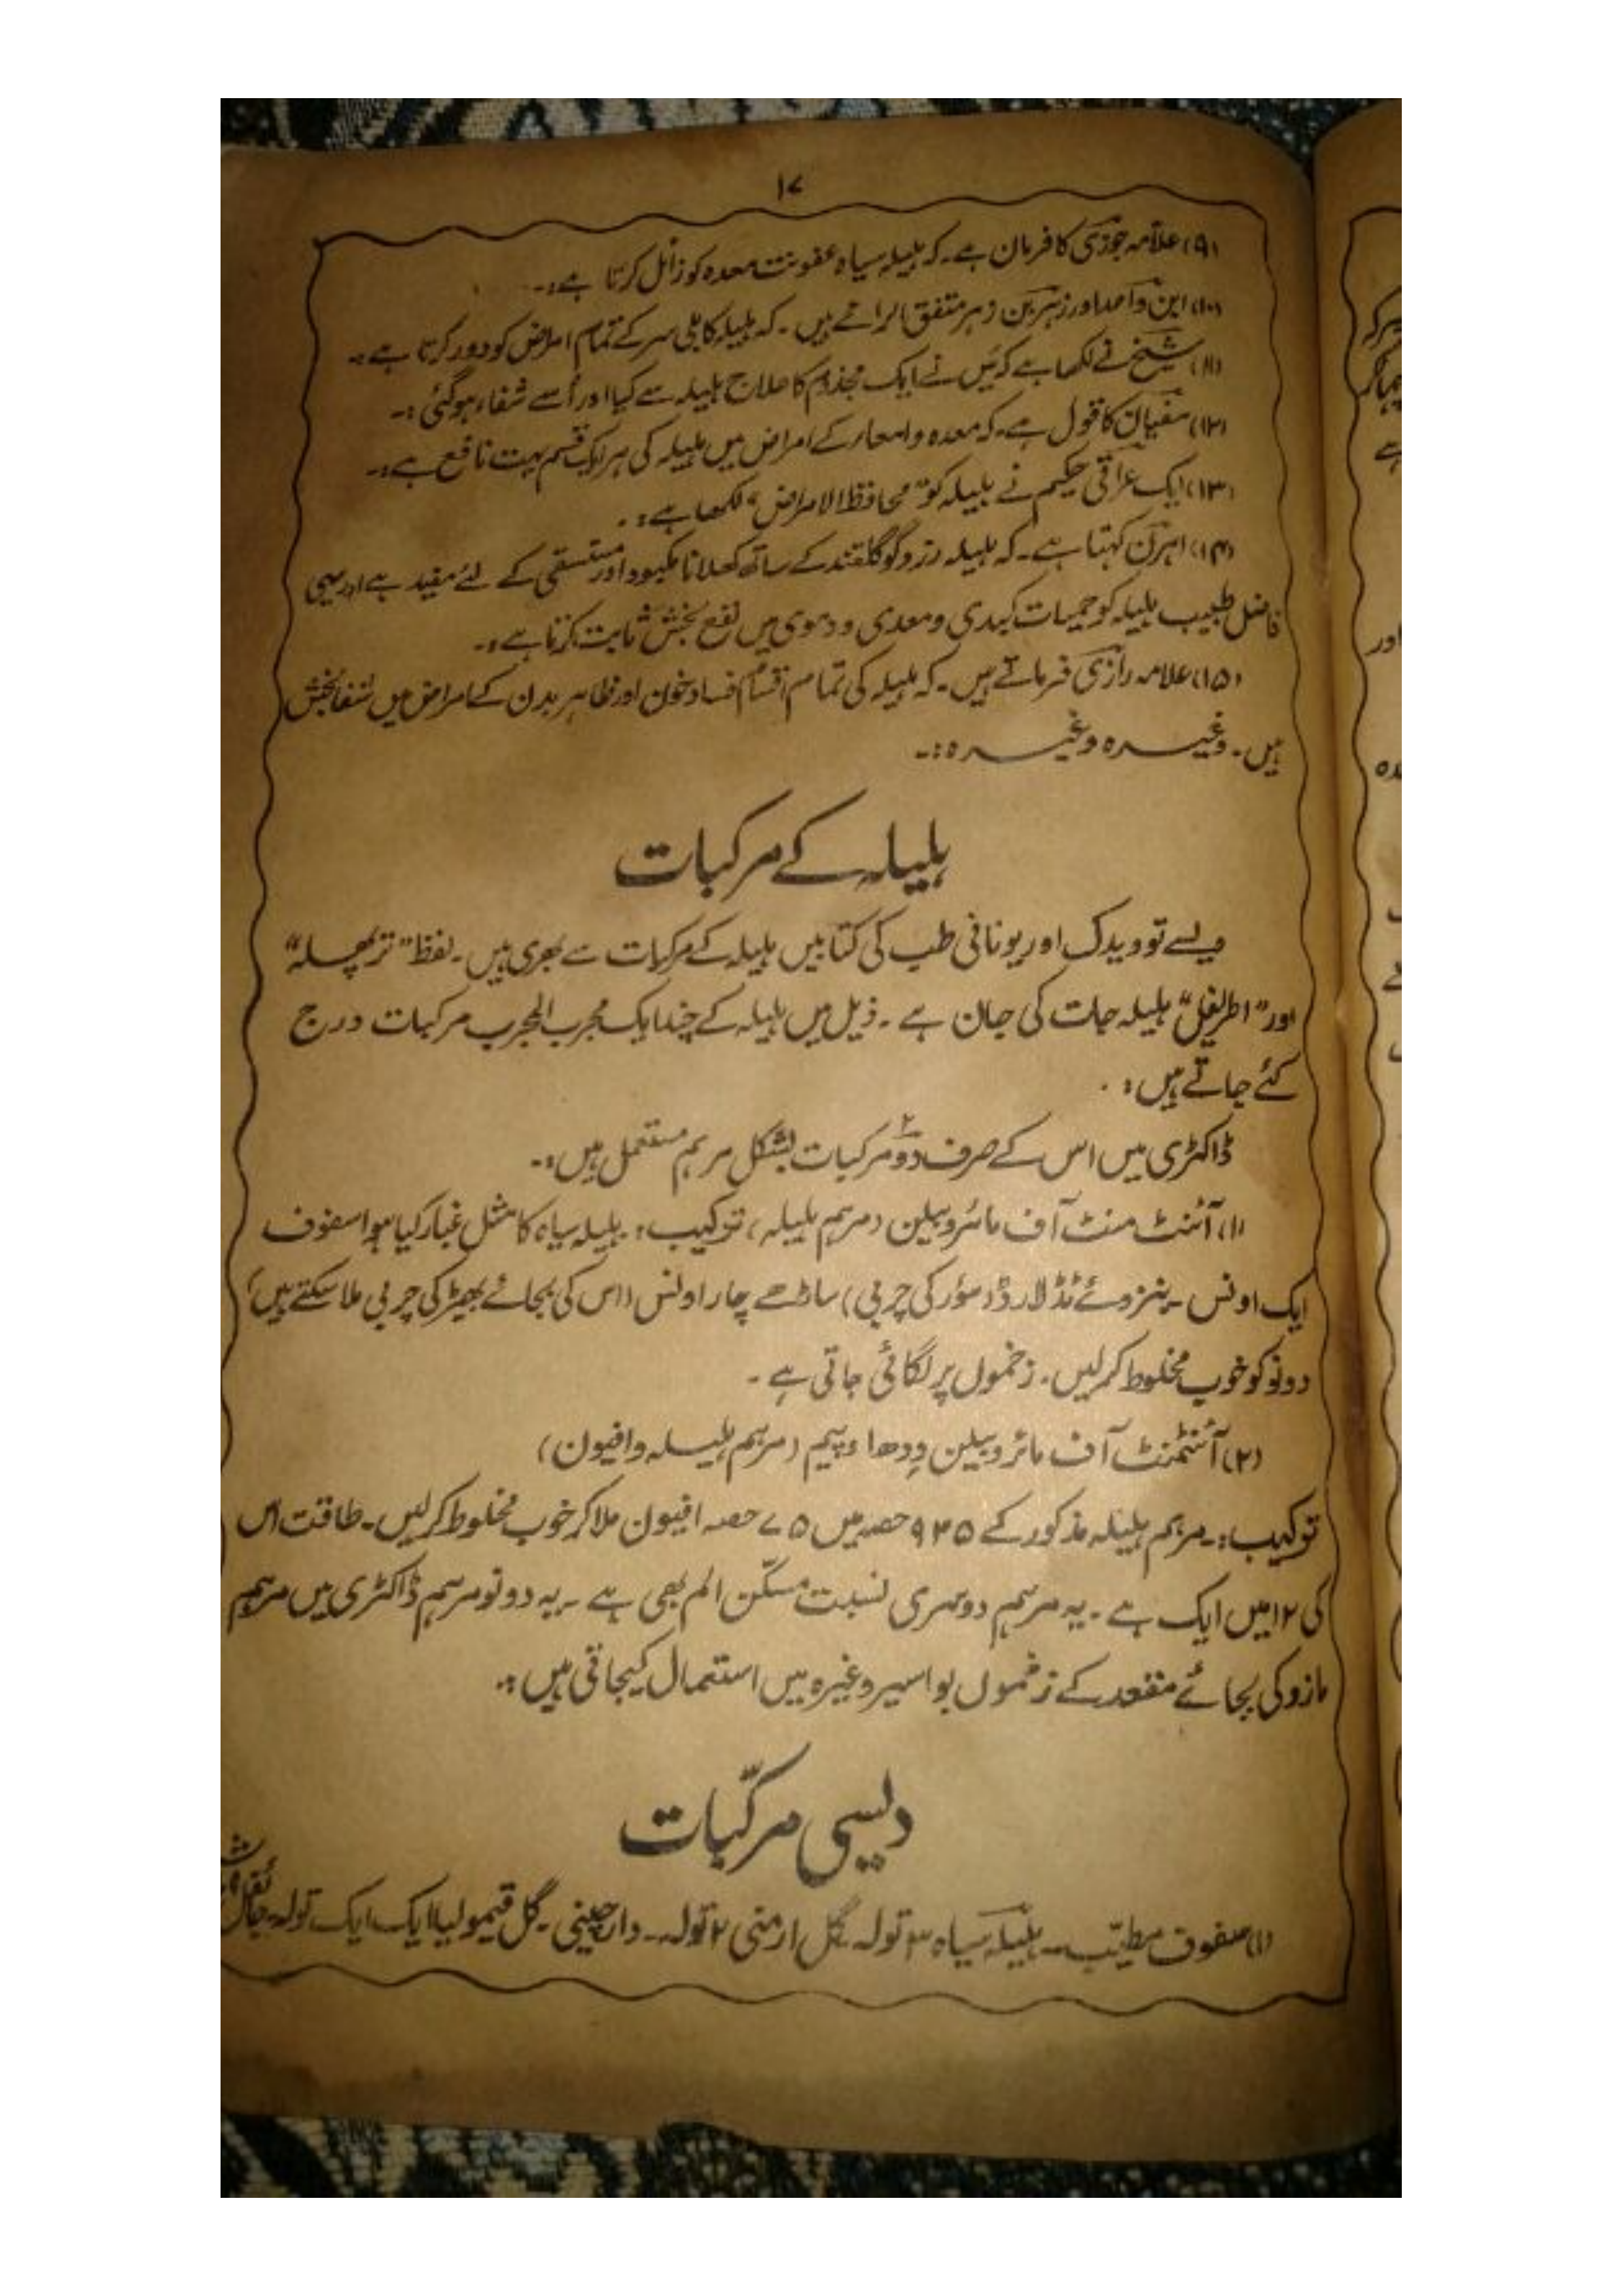 ۱۷
(۹) علامہ جوزی کا فرمان ہے۔ کہ ہلیلہ سیاہ عفونت معدہ کو زائل کرتا ہے:۔
(۱۰) ابن واحد اور زہر بن زہر متفق الرائے ہیں۔ کہ ہلیلہ کابلی سر کے تمام امراض کو دور کرتا ہے:۔
(۱۱) شیخ نے لکھا ہے کہ میں نے ایک مجذوم کا علاج ہلیلہ سے کیا اور اُسے شفاء ہوگئی:۔
(۱۲) سفیان کا قول ہے۔ کہ معدہ و امعاء کے امراض میں ہلیلہ کی ہر ایک قسم بہت نافع ہے:۔
(۱۳) ایک عراقی حکیم نے ہلیلہ کو "محافظ الامراض" لکھا ہے:۔
(۱۴) اہرن کہتا ہے۔ کہ ہلیلہ زرد کو گلقند کے ساتھ کھلانا مکبود اور مستسقی کے لئے مفید ہے اور یہی
فاضل طبیب ہلیلہ کو حمیات کبدی و معدی و دموی میں نفع بخش ثابت کرتا ہے:۔
(۱۵) علامہ رازی فرماتے ہیں۔ کہ ہلیلہ کی تمام اقسام فساد خون اور ظاہر بدن کے امراض میں شفا بخش
ہیں۔ وغیرہ وغیرہ:۔
ہلیلہ کے مرکبات
ویسے تو ویدک اور یونانی طب کی کتابیں ہلیلہ کے مرکبات سے بھری ہیں۔ لفظ "تر پھلہ"
اور "اطریفل" ہلیلہ جات کی جان ہے۔ ذیل میں ہلیلہ کے چند ایک مجرب المجرب مرکبات درج
کئے جاتے ہیں:۔
ڈاکٹری میں اس کے صرف دو۲ مرکبات بشکل مرہم مستعمل ہیں:۔
(۱) آئنٹ منٹ آف مائروبیلن (مرہم ہلیلہ) ترکیب: ہلیلہ سیاہ کا مثل غبار کیا ہوا سفوف
ایک اونس۔ بنزوئے ٹڈ لارڈ (سؤر کی چربی) ساڑھے چار اونس (اس کی بجائے بھیڑ کی چربی ملا سکتے ہیں)
دونو کو خوب مخلوط کرلیں۔ زخموں پر لگائی جاتی ہے۔
(۲) آئنٹمنٹ آف مائروبیلن وِدھ اوپیم (مرہم ہلیلہ و افیون)
ترکیب:۔ مرہم ہلیلہ مذکور کے ۹۲۵ حصہ میں ۷۵ حصہ افیون ملا کر خوب مخلوط کرلیں۔ طاقت اس
کی ۱۲ میں ایک ہے۔ یہ مرہم دوسری نسبت مسکّن الم بھی ہے۔ یہ دونو مرہم ڈاکٹری میں مرہم
مازو کی بجائے مقعد کے زخموں بواسیر وغیرہ میں استعمال کیجاتی ہیں:۔
دیسی مرکّبات
(۱) سفوف مطیّب۔ ہلیلہ سیاہ ۳ تولہ۔ گل ارمنی ۲ تولہ۔ دارچینی۔ گل قیمولیا ایک ایک تولہ۔ جائفل